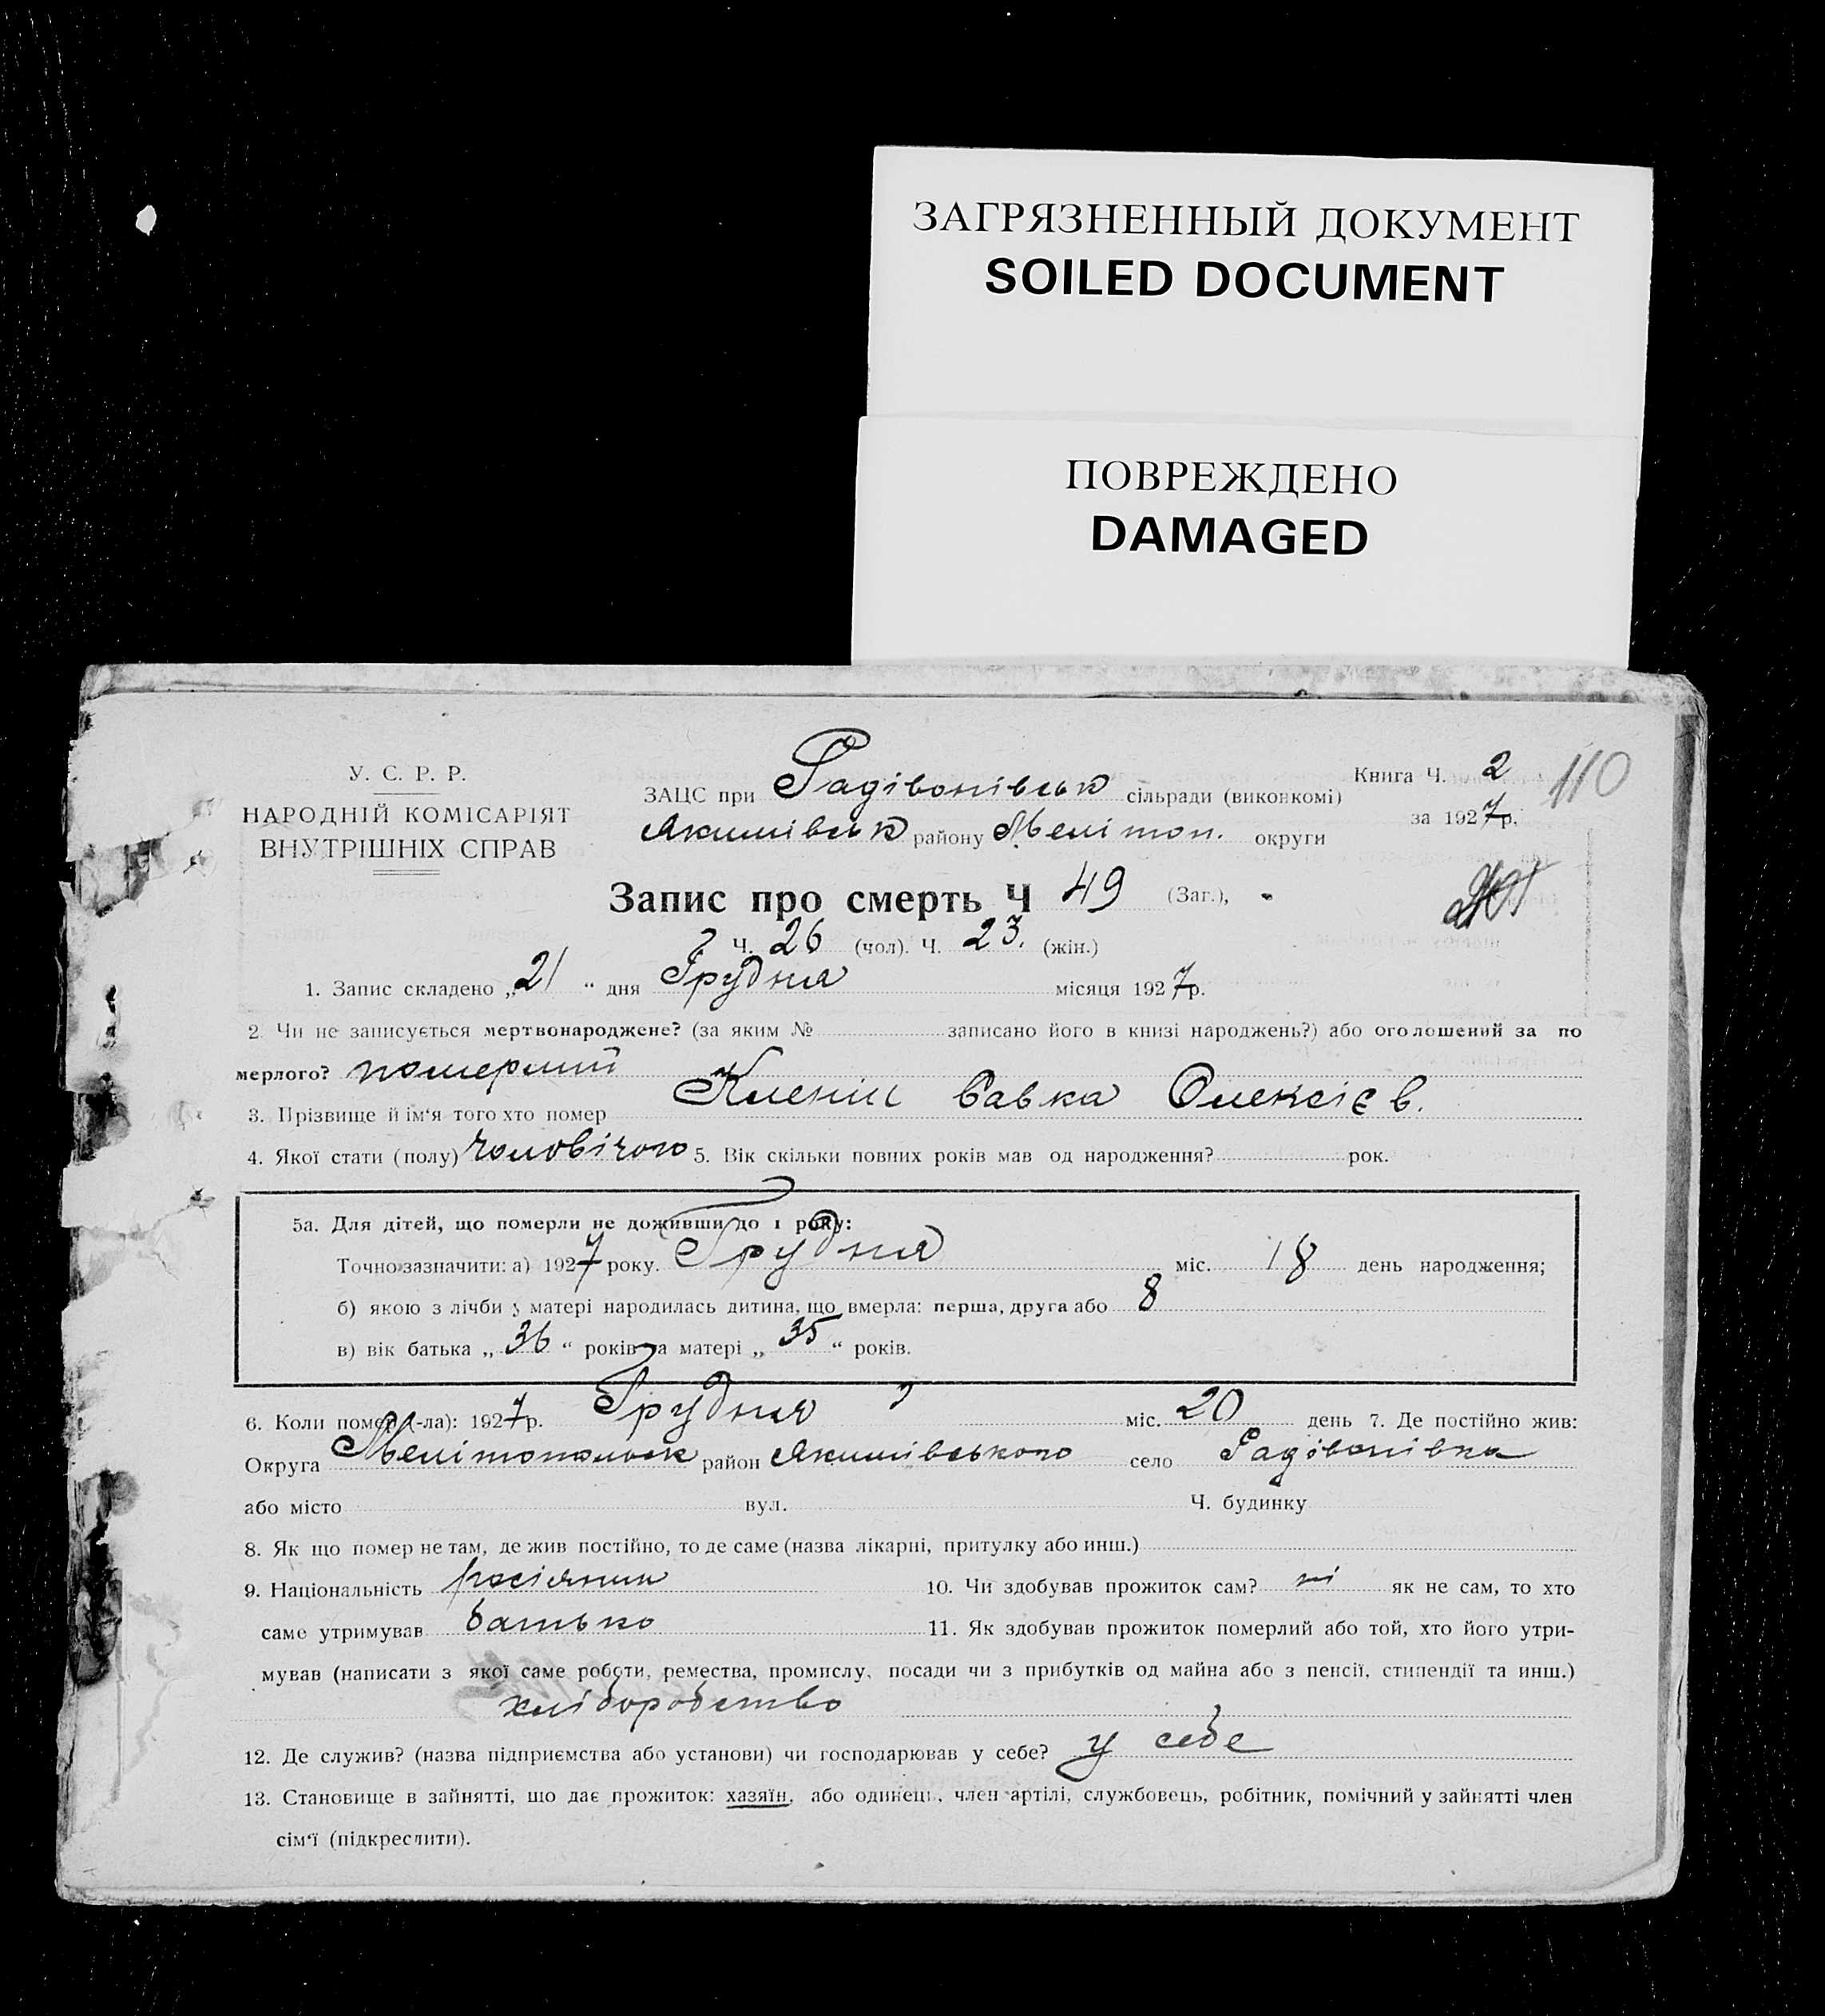 ЗАГРЯЗНЕННЫЙ ДОКУМЕНТ
SOILED DOCUMENT
ПОВРЕЖДЕНО
DAMAGED
У. С. Р. Р.
НАРОДНІЙ КОМІСАРІЯТ
ВНУТРІШНІХ СПРАВ
ЗАЦС при Радівонівськ сільради (виконкомі)
Якимівськ району Меліто́п. округи
Книга Ч. 2
за 1927р.
110
Запис про смерть Ч 49 (Заг.),
Ч. 26 (чол). Ч. 23. (жін.)
1. Запис складено „21“ дня Грудня місяця 1927р.
2. Чи не записується мертвонароджене? (за яким № записано його в книзі народжень?) або оголошений за по
мерлого? померший
3. Прізвище й ім‘я того хто помер Кленін Савка Олексієв.
4. Якої стати (полу) чоловічого 5. Вік скільки повних років мав од народження? рок.
5а. Для дітей, що померли не доживши до 1 року:
Точно зазначити: а) 1927 року. Грудня міс. 18 день народження;
б) якою з лічби у матері народилась дитина, що вмерла: перша, друга або 8
в) вік батька „36“ років та матері „35“ років.
6. Коли помер (-ла): 1927р. Грудня міс. 20 день 7. Де постійно жив:
Округа Мелітопольск район Якимівського село Радівонівка
або місто вул. Ч. будинку
8. Як що помер не там, де жив постійно, то де саме (назва лікарні, притулку або инш.)
9. Національність росіянин 10. Чи здобував прожиток сам? ні як не сам, то хто
саме утримував батько 11. Як здобував прожиток померлий або той, хто його утри-
мував (написати з якої саме роботи, ремества, промислу, посади чи з прибутків од майна або з пенсії, стипендії та инш.)
хліборобство
12. Де служив? (назва підприємства або установи) чи господарював у себе? у себе
13. Становище в зайнятті, що дає прожиток: хазяїн, або одинець, член артілі, службовець, робітник, помічний у зайнятті член
сім‘ї (підкреслити).